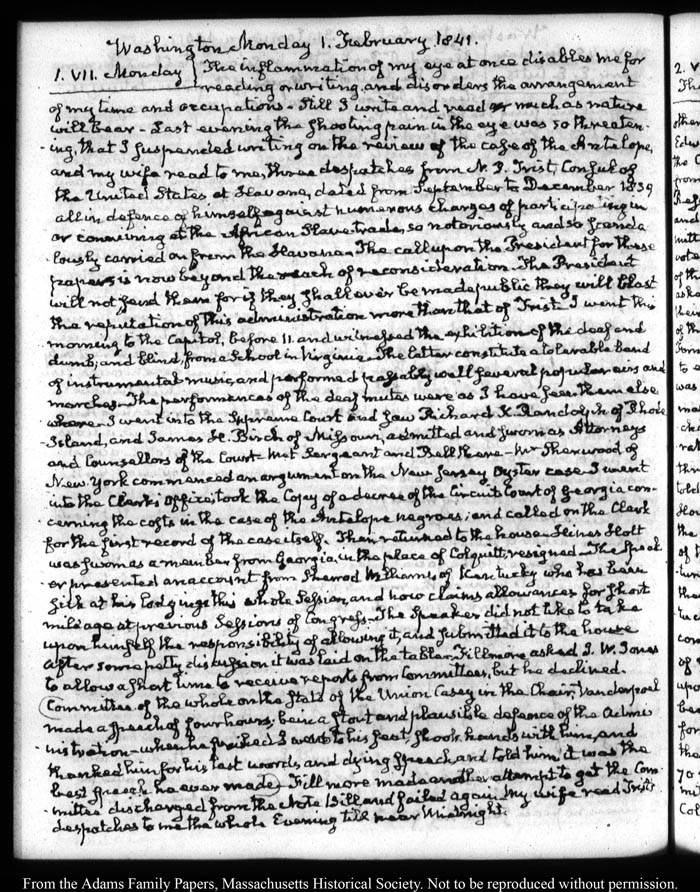 Washington Monday 1. February 1841.
1. VII. Monday } The inflammation of my eye at once disables me for
reading or writing, and disorders the arrangement
of my time and occupations - Still I write and read as much as nature
will bear - Last evening the shooting pain in the eye was so threaten-
ing, that I suspended writing on the review of the case of the Antelope,
and my wife read to me, three despatches from N. P. Trist, Consul of
the United States at Havana, dated from September to December 1839
all in defence of himself against numerous charges of participating in
or conniving at the African Slave trade, so notoriously and so scanda
lously carried on from the Havana - The call upon the President for these
papers is now beyond the reach of reconsideration - The President
will not send them for if they shall ever be made public they will blast
the reputation of this administration more than that of Trist. I went this
morning to the Capitol, before 11. and witnessed the exhibition of the deaf and
dumb, and blind, from a School in Virginia - The latter constitute a tolerable band
of instrumental music, and performed passably well several popular airs and
marches - The performances of the deaf mutes were as I have seen them else
where - I went into the Supreme Court and saw Richard K. Randolph of Rhode
Island, and James H. Birch of Missouri, admitted and sworn as Attorneys
and Counsellors of the Court - Sergeant and Mr Sherwood of
New York commenced an argument on the New Jersey Oyster case - I went
into the Clerk's Office; took the Copy of a decree of the Circuit Court of Georgia con-
cerning the costs in the case of the Antelope negroes; and called on the Clerk
for the first record of the case itself. Then returned to the house - Hines Holt
was sworn as a member from Georgia, in the place of Colquitt, resigned - The Speak
er presented an account from Sherrod Williams, of Kentucky who has been
sick at his lodgings this whole Session, and now claims allowances for short
mileage at previous Sessions of Congress - The Speaker did not like to take
upon himself the responsibility of allowing it, and submitted it to the house
After some petty discussion it was laid on the table - Fillmore asked J. W. Jones
to allow a short time to receive reports from Committees, but he declined.
Committee of the whole on the State of the Union Casey in the Chair, Vanderpoel
made a speech of four hours; being a stout and plausible defence of the Admi
nistration - when he finished I went to his seat, shook hands with him, and
thanked him for his last words, and dying speech, and told him it was the
best speech he ever made) Fillmore made another attempt to get the Com-
mittee discharged from the Note Bill and failed again. My wife read Trist's
despatches to me the whole Evening till near Midnight.
2. V
From the Adams Family Papers, Massachusetts Historical Society. Not to be reproduced without permission.